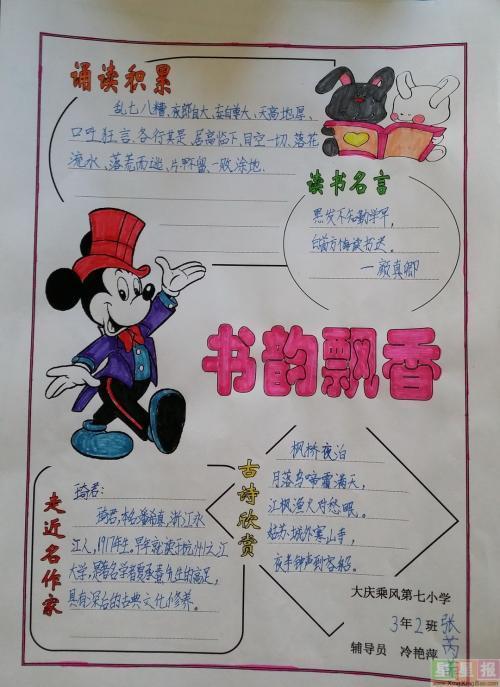 诵读积累
乱七八糟、夜郎自大、妄自尊大、天高地厚、
口吐狂言、各行其是、居高临下、目空一切、落花
流水、落荒而逃、片甲不留、一败涂地.
读书名言
黑发不知勤学早,
白首方悔读书迟。
一颜真卿
书韵飘香
古诗欣赏
枫桥夜泊
月落乌啼霜满天,
江枫渔火对愁眠。
姑苏城外寒山寺,
夜半钟声到客船。
走近名作家
琦君:
琦君,本名潘希真,浙江永
江人,1917年生,早年就读于杭州之江
大学,是著名学者夏承焘先生的高足,
具有深厚的古典文化修养。
大庆乘风第七小学
3年2班 张芮
辅导员 冷艳萍
星星报